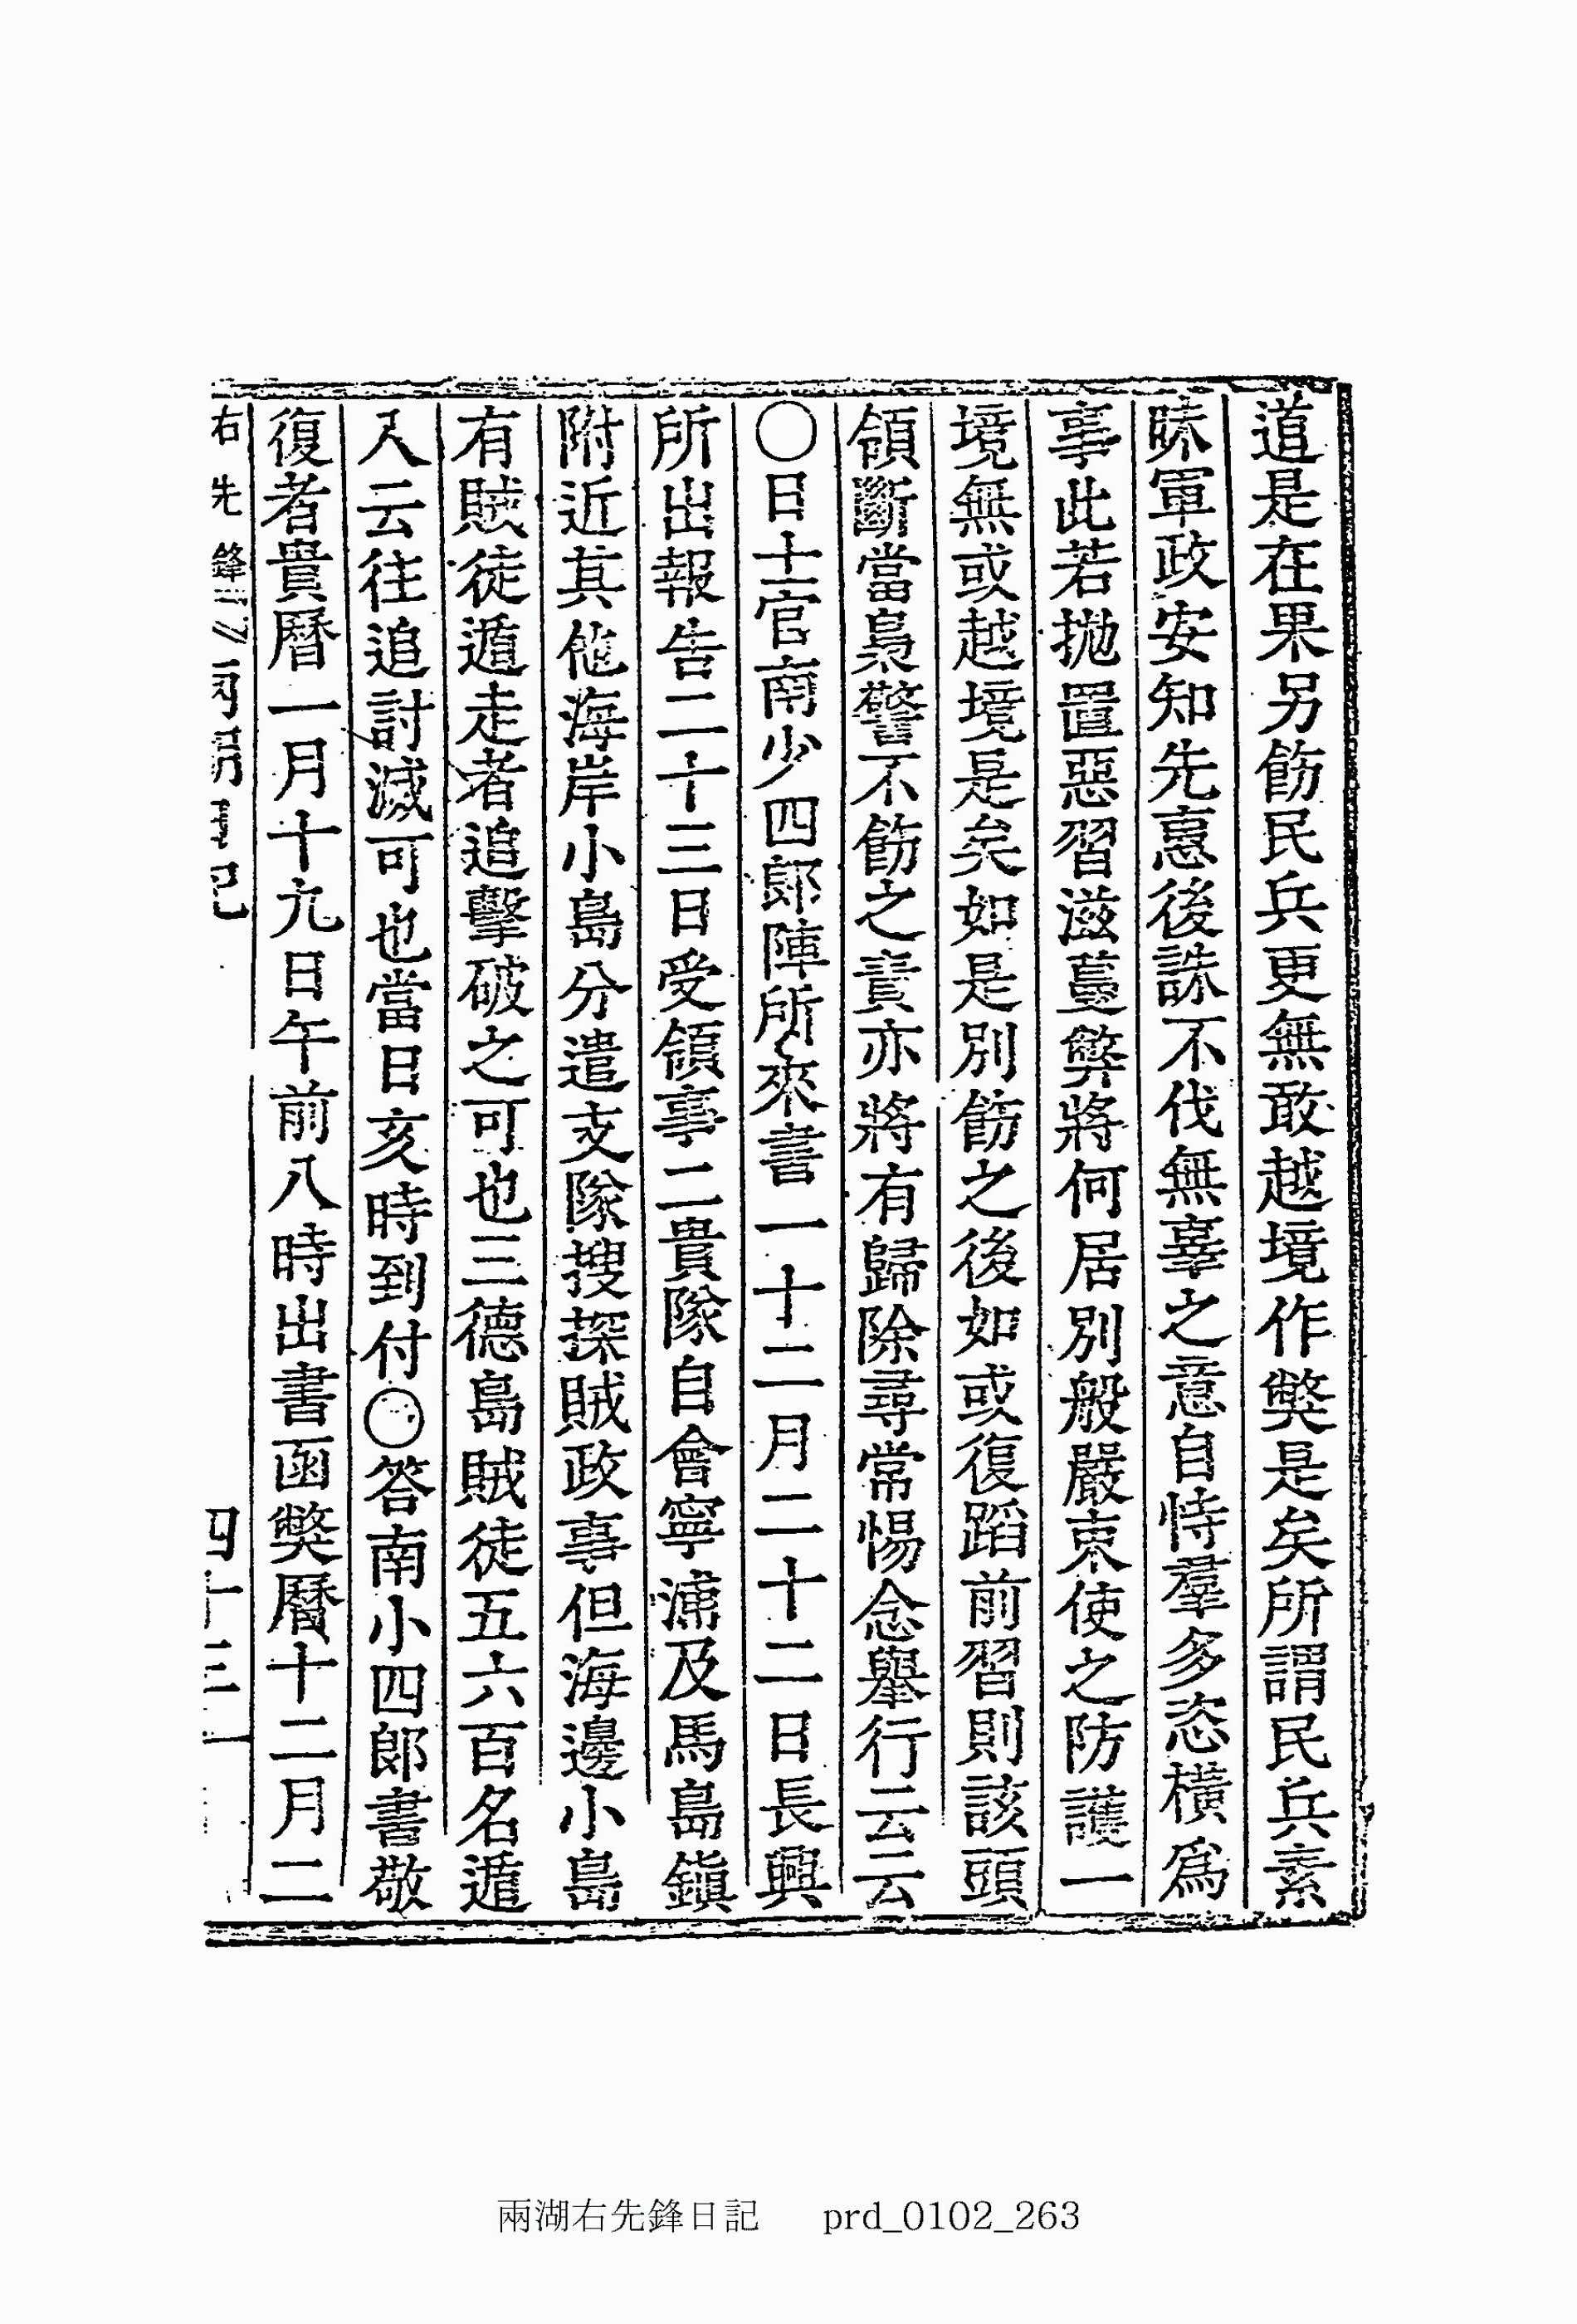 道是在果另飭民兵更無敢越境作弊是矣所謂民兵素
昧軍政安知先惪後誅不伐無辜之意自恃羣多恣橫爲
事此若抛置惡習滋蔓弊將何居別般嚴束使之防護一
境無或越境是矣如是別飭之後如或復蹈前習則該頭
領斷當梟警不飭之責亦將有歸除尋常惕念擧行云云
○日士官南少四郞陣所來書一十二月二十二日長興
所出報告二十三日受領事二貴隊自會寧浦及馬島鎭
附近其他海岸小島分遣支隊搜探賊政事但海邊小島
有賊徒遁走者追擊破之可也三德島賊徒五六百名遁
入云徃追討滅可也當日亥時到付○答南小四郞書敬
復者貴曆一月十九日午前八時出書函弊曆十二月二
右先鋒 兩湖日記 四十三
兩湖右先鋒日記 prd_0102_263